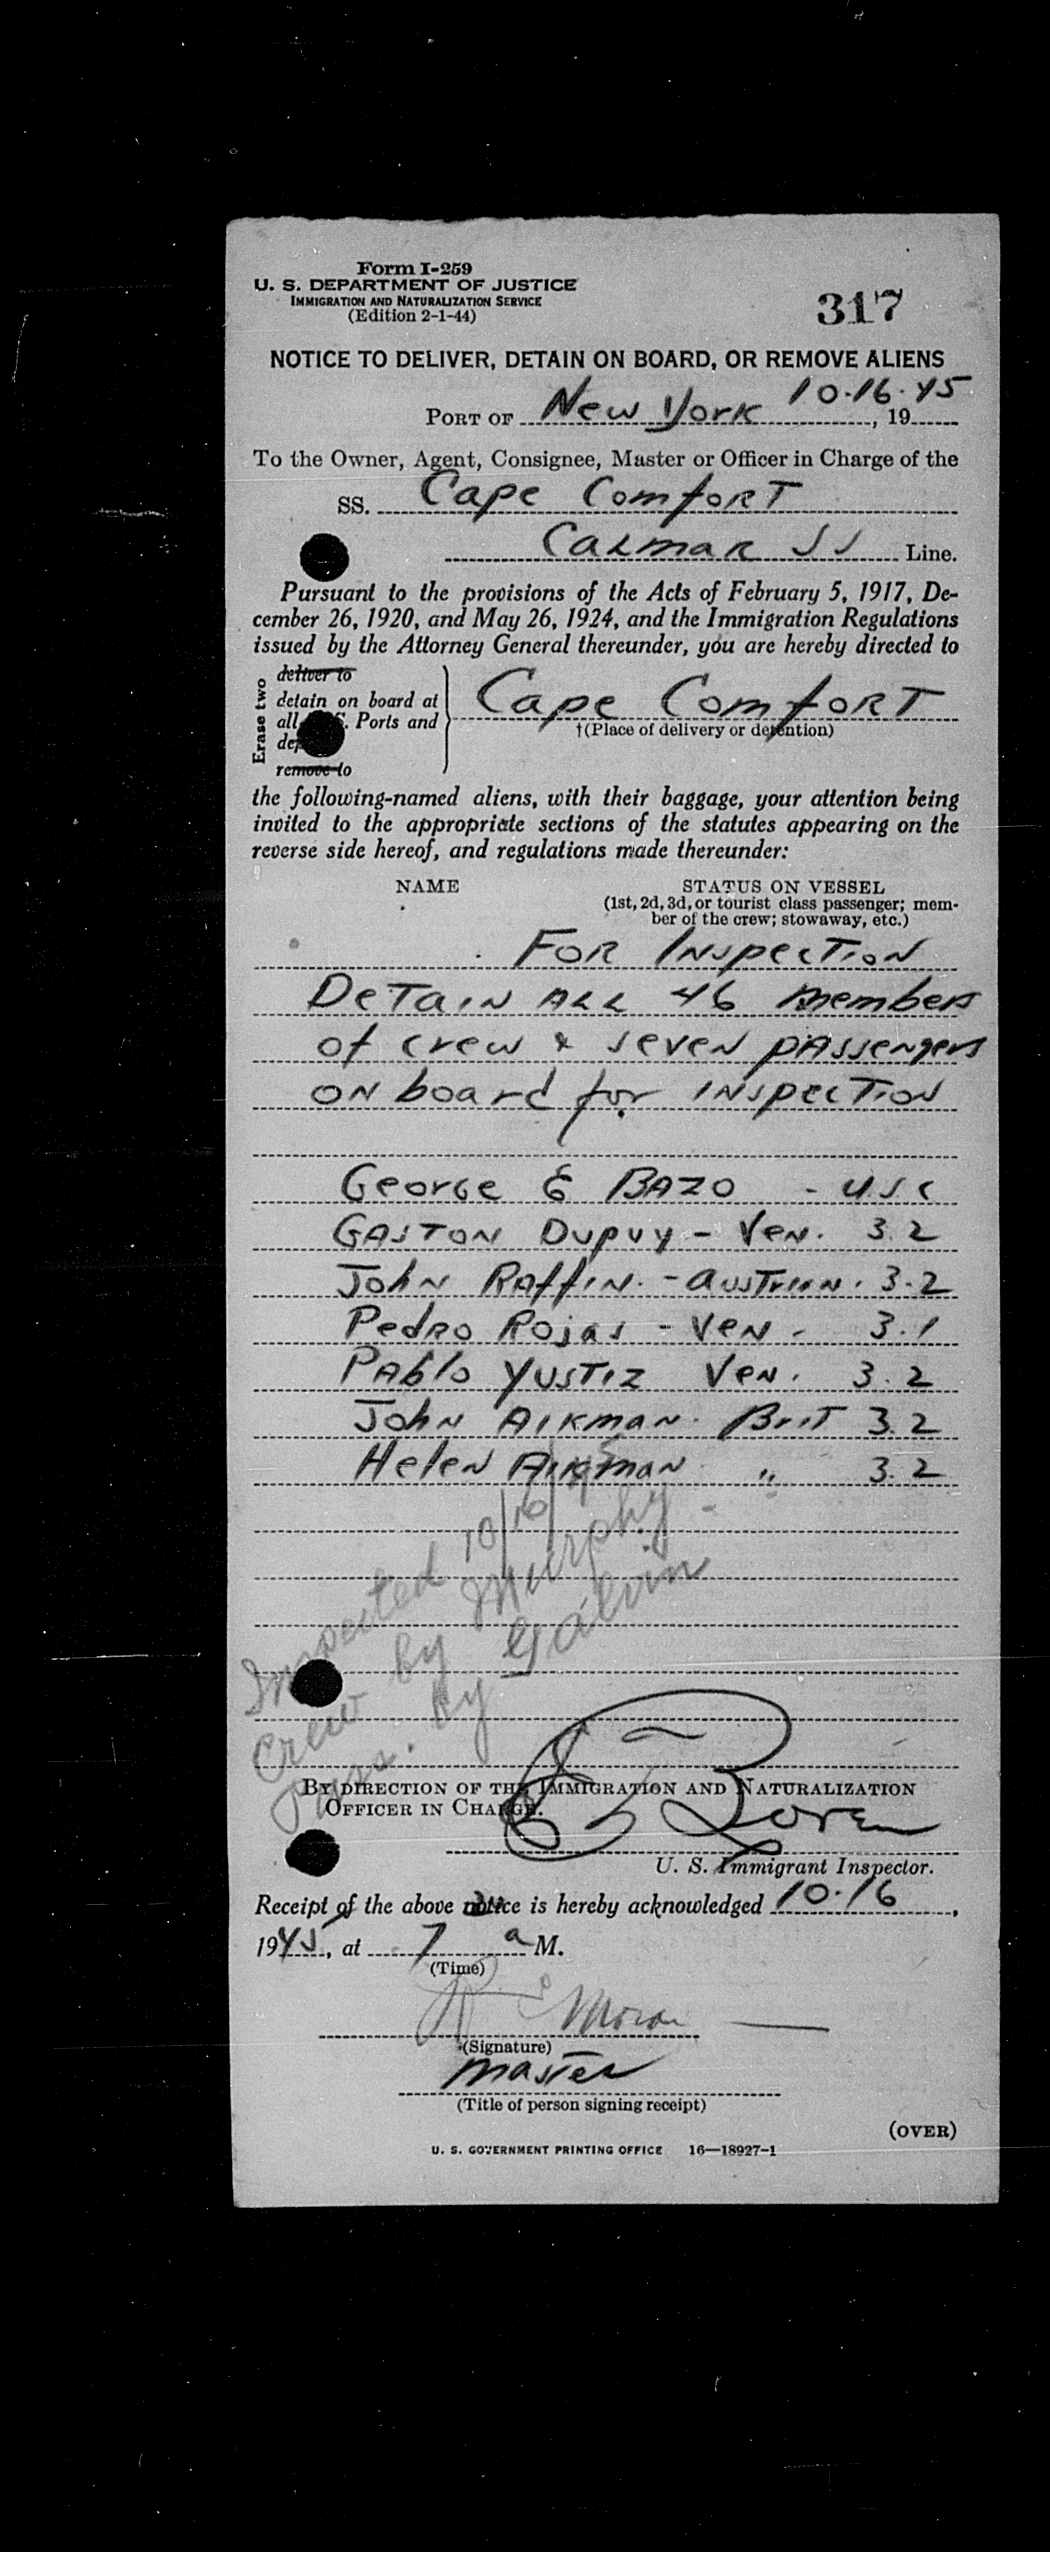 Form I-259
U. S. DEPARTMENT OF JUSTICE
IMMIGRATION AND NATURALIZATION SERVICE
(Edition 2-1-44)
317
NOTICE TO DELIVER, DETAIN ON BOARD, OR REMOVE ALIENS
PORT OF New York 10-16-45, 19
To the Owner, Agent, Consignee, Master or Officer in Charge of the
SS. Cape Comfort
Calmar SS Line.
Pursuant to the provisions of the Acts of February 5, 1917, De-
cember 26, 1920, and May 26, 1924, and the Immigration Regulations
issued by the Attorney General thereunder, you are hereby directed to
Erase two
deliver to
detain on board at
all Ports and
remove to
Cape Comfort
†(Place of delivery or detention)
the following-named aliens, with their baggage, your attention being
invited to the appropriate sections of the statutes appearing on the
reverse side hereof, and regulations made thereunder:
NAME STATUS ON VESSEL
(1st, 2d, 3d, or tourist class passenger; mem-
ber of the crew; stowaway, etc.)
For Inspection
Detain all 46 members
of crew & seven passengers
on board for inspection
George E Bazo - USC
Gaston Dupuy - Ven. 3.2
John Raffin. - Austrian. 3-2
Pedro Rojas - Ven - 3.1
Pablo Yustiz Ven. 3.2
John Aikman. Brit 3.2
Helen Aikman " 3.2
Inspected 10/16/45
Crew by Murphy
Pass. by Galvin
BY DIRECTION OF THE IMMIGRATION AND NATURALIZATION
OFFICER IN CHARGE.
U. S. Immigrant Inspector.
Receipt of the above notice is hereby acknowledged 10-16,
1945, at 7 a M.
(Time)
Moran
(Signature)
Master
(Title of person signing receipt)
(OVER)
U. S. GOVERNMENT PRINTING OFFICE 16—18927-1